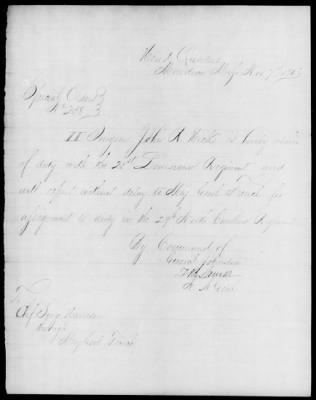 Head Quarters
Meridian Miss Nov 7th 1863
Special Orders
No 228
II Surgeon John A Hicks is hereby reliev
of duty with the 28th Louisiana Regiment and
will report without delay to Maj Genl French for
assignment to duty in the 29th North Carolina Regiment
By Command of
General Johnston
A A Genl
To
Surgeon
through
Maj Genl French